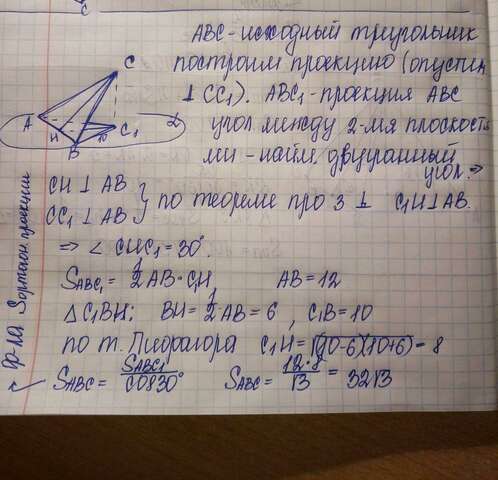 ABC - исходный треугольник
построим проекцию (опустим
⊥ CC₁). ABC₁ - проекция ABC
угол между 2-мя плоскостя
ми - найм. двугранный
угол. ⇒
C
A
H
B
D
C₁
α
CH ⊥ AB
CC₁ ⊥ AB } по теореме про 3 ⊥ C₁H ⊥ AB.
⇒ ∠ CHC₁ = 30°.
S_ABC₁ = 1/2 AB · C₁H AB = 12
△ C₁BH: BH = 1/2 AB = 6 , C₁B = 10
по т. Пифагора C₁H = √(10-6)(10+6) = 8
S_ABC = S_ABC₁ / cos 30° S_ABC = 12·8 / √3 = 32√3
ф-ла S ортогон. проекции